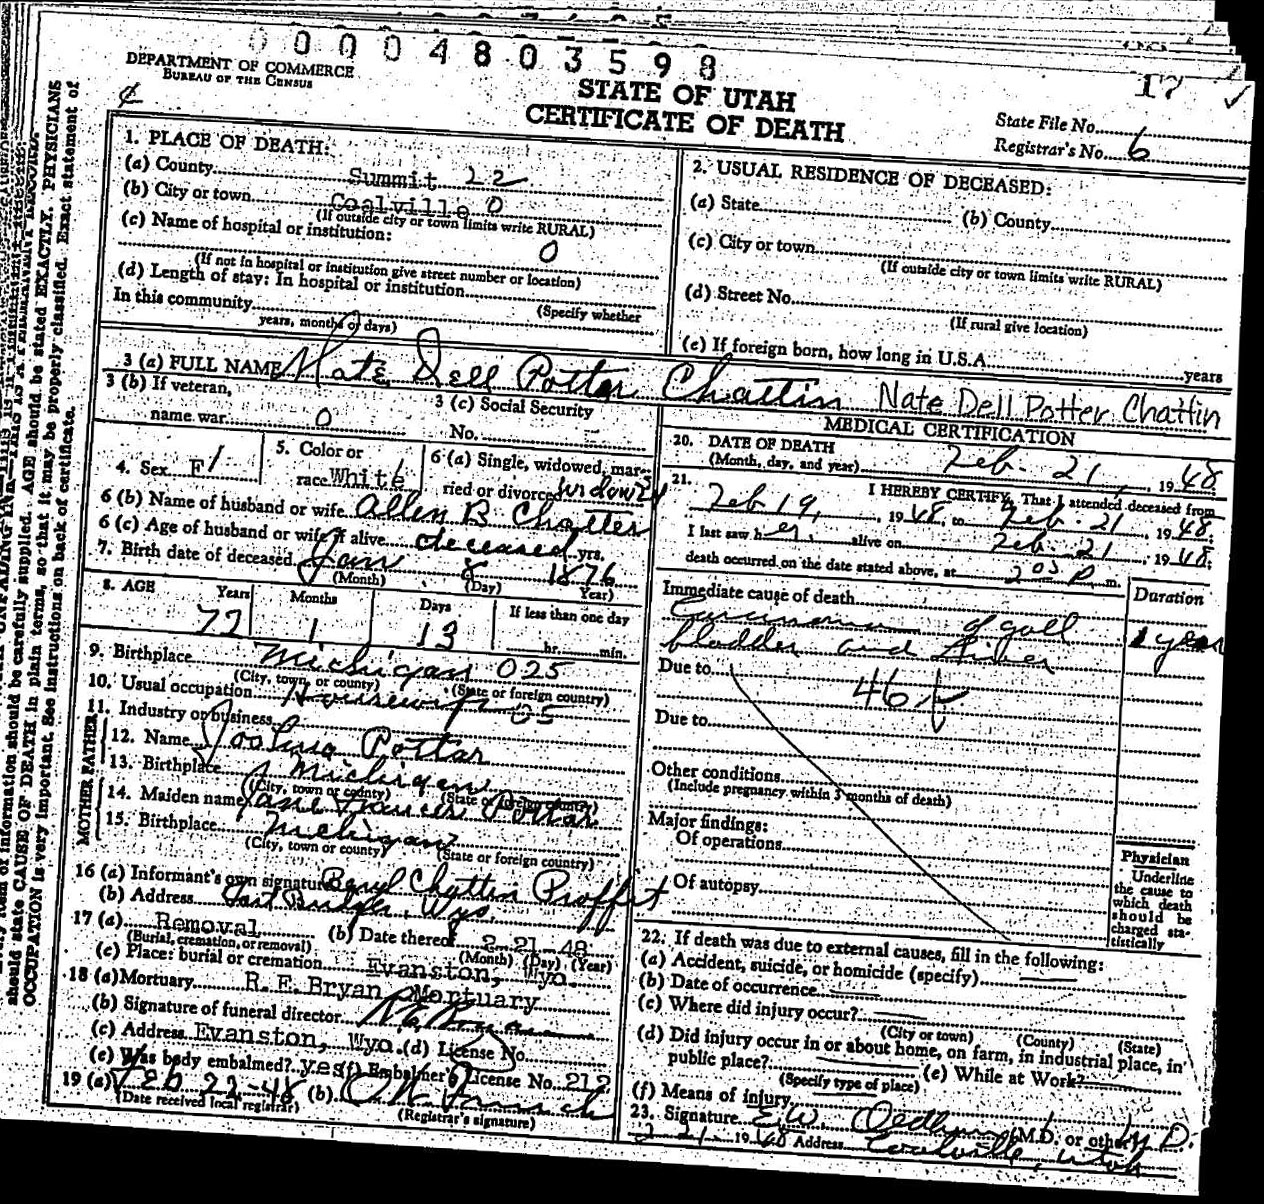 0000480 3598
DEPARTMENT OF COMMERCE
BUREAU OF THE CENSUS
17 ✓
STATE OF UTAH
CERTIFICATE OF DEATH
State File No.
Registrar's No. 6
1. PLACE OF DEATH:
(a) County Summit 22
(b) City or town Coalville 0
(If outside city or town limits write RURAL)
(c) Name of hospital or institution:
0
(If not in hospital or institution give street number or location)
(d) Length of stay: In hospital or institution
(Specify whether
In this community
years, months or days)
2. USUAL RESIDENCE OF DECEASED:
(a) State (b) County
(c) City or town
(If outside city or town limits write RURAL)
(d) Street No.
(If rural give location)
(e) If foreign born, how long in U.S.A. years
3 (a) FULL NAME Nate Dell Potter Chattin Nate Dell Potter Chattin
3 (b) If veteran,
name war 0
3 (c) Social Security
No.
4. Sex F 1
5. Color or
race White
6 (a) Single, widowed, mar-
ried or divorced widowed
6 (b) Name of husband or wife Allen B Chatten
6 (c) Age of husband or wife if alive deceased yrs.
7. Birth date of deceased Jan 8 1876
(Month) (Day) Year)
8. AGE Years Months Days If less than one day
72 1 13 hr. min.
9. Birthplace Michigan 025
(City, town, or county) (State or foreign country)
10. Usual occupation Housewife
11. Industry or business 05
FATHER
12. Name Joshua Pottar
13. Birthplace Michigan
(City, town or county) (State or foreign country)
MOTHER
14. Maiden name Jane Frances Pottar
15. Birthplace Michigan
(City, town or county) (State or foreign country)
16 (a) Informant's own signature Beryl Chattin Proffit
(b) Address Fort Bridger, Wyo.
17 (a) Removal (b) Date thereof 2-21-48
(Burial, cremation, or removal) (Month) (Day) (Year)
(c) Place: burial or cremation Evanston, Wyo.
18 (a) Mortuary R.E.Bryan Mortuary
(b) Signature of funeral director R E Bryan
(c) Address Evanston, Wyo. (d) License No.
(e) Was body embalmed? yes (f) Embalmer's License No. 212
19 (a) Feb 22-48 (b)
(Date received local registrar) (Registrar's signature)
MEDICAL CERTIFICATION
20. DATE OF DEATH
(Month, day, and year) Feb. 21, 1948
21. I HEREBY CERTIFY, That I attended deceased from
Feb 19, 1948, to Feb. 21, 1948.
I last saw her alive on Feb. 21 1948;
death occurred on the date stated above, at 2 05 P m.
Immediate cause of death Duration
Carcinoma of gall
bladder and liver 1 year
Due to
46 f
Due to
Other conditions
(Include pregnancy within 3 months of death)
Major findings:
Of operations
Of autopsy
Physician
Underline
the cause to
which death
should be
charged sta-
tistically
22. If death was due to external causes, fill in the following:
(a) Accident, suicide, or homicide (specify)
(b) Date of occurrence
(c) Where did injury occur?
(City or town) (County) (State)
(d) Did injury occur in or about home, on farm, in industrial place, in
public place? (e) While at Work?
(Specify type of place)
(f) Means of injury
23. Signature E.W. (M.D. or other) M.D.
2-21-1948 Address Coalville, Utah
should state CAUSE OF DEATH in plain terms, so that it may be properly classified. Exact statement of
OCCUPATION is very important. See instructions on back of certificate.